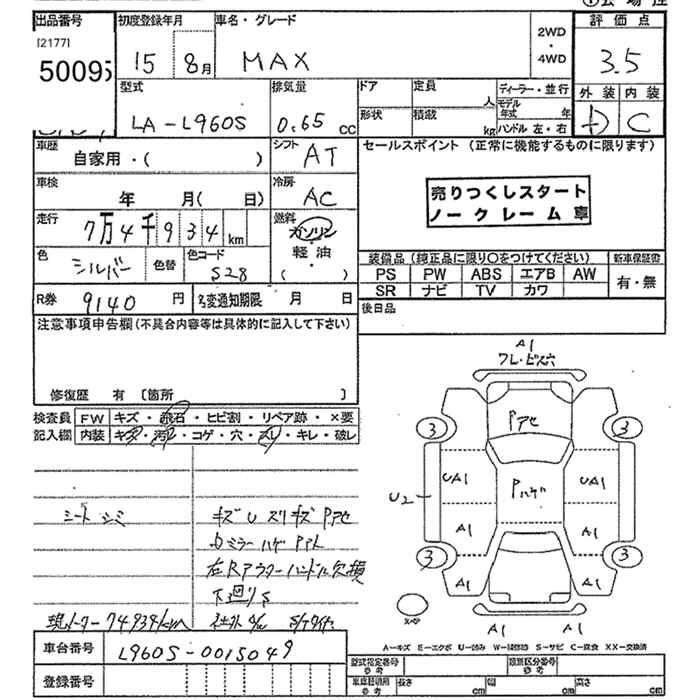 出品番号 初度登録年月 車名・グレード 評価点
[2177]
50095
15 8月 MAX 2WD・4WD 3.5
型式 排気量 ドア 定員 人 ディーラー・並行 外装 内装
LA-L960S 0.65 cc 形状 積載 kg モデル年式 年 ハンドル 左・右 D C
車歴 自家用・( ) シフト AT セールスポイント (正常に機能するものに限ります)
車検 年 月( 日) 冷房 AC
売りつくしスタート
ノークレーム車
走行 7万4千934km 燃料 ガソリン
軽油
( ・ )
色 シルバー 色替 色コード S28
装備品 (純正品に限り○をつけてください) 新車保証書
PS PW ABS エアB AW 有・無
SR ナビ TV カワ
R券 9140円 名変通知期限 月 日
後日品
注意事項申告欄(不具合内容等は具体的に記入して下さい)
修復歴 有 〔箇所 〕
検査員 FW キズ・飛石・ヒビ割・リペア跡・×要
記入欄 内装 キズ・汚れ・コゲ・穴・スレ・キレ・破レ
シートシミ
キズU スリキズ Pアセ
カミラーハゲ
右Rアウターハンドル欠損
下廻りS
現メーター74934km
A1
ワレ・ビス穴
Pアセ
3 3
UA1 Pハゲ UA1
U2
A1 A1
3 3
A1 A1
A1 A1
A=キズ E=エクボ U=凹み W=補修跡 S=サビ C=腐食 XX=交換済
車台番号 L960S-0015049
登録番号
型式指定番号 参考 類別区分番号 参考
車庫証明用 参考 長さ cm 幅 cm 高さ cm